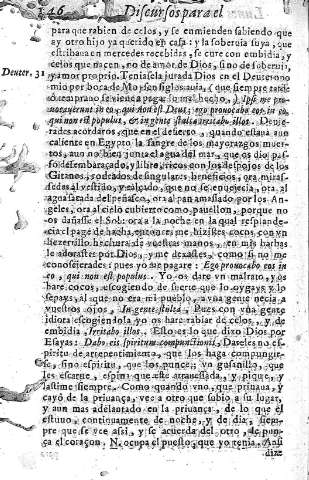 246 Discursos para el
para que rabien de celos, y se enmienden sabiendo que
ay otro hijo ya querido en casa: y la soberuia suya, que
estribaua en mercedes recebidas, se cure con embidia, y
celos que nacen, no de amor de Dios, sino de soberuia,
y amor proprio. Teniasela jurada Dios en el Deuterono
Deuter. 32
mio por boca de Moysen siglos auia, (que siempre tarde
ò temprano se viene a pagar lo mal hecho.) Ipsi me pro-
uocauerunt in eo, qui non est Deus: ego prouocabo eos in eo,
qui non est populus, & in gente stulta irritabo illos. Deui-
erades acordaros, que en el desierto, quando estaua aun
caliente en Egypto la sangre de los mayorazgos muer-
tos, aun no bien junta el agua del mar, que os dio pas-
so desembaraçado, y libre, ricos con los despojos de los
Gitanos, rodeados de singulares beneficios, ora mirasse-
sedas al vestido, y calçado, que no se enuejecia, ora al
agua sacada del peñasco, ora al pan amassado por los An-
geles, ora al cielo cubierto como pauellon, porque no
os dañasse el Sol: ora a la noche en la qual resplande-
cia el page de hacha, entonces me hizistes cocos con vn
bezerrillo hechura de vuestras manos, en mis barbas
le adorastes por Dios, y me dexastes, como si no me
conocierades: pues yo as pagare: Ego prouocabo eos in
eo, qui non est populus. Yo os dare vn malrato, y os
hare cocos, escogiendo de suerte que lo oygays, y lo
sepays, al que no era mi pueblo, a vna gente necia a
vuestros ojos, In gente stulta: Pues con vna gente
idiota escogiendola yo os hare rabiar de celos, y de
embidia, Irritabo illos. Esso es lo que dixo Dios por
Esayas: Dabo eis spiritum compunctionis, Dareles no espi-
ritu de arrepentimiento, que los haga compungir-
se, sino espiritu, que los punce, vn gusanillo, que
les escarue, espina que este atrauessada, y pique, y
lastime siempre. Como quando vno, que priuaua, y
cayò de la priuança, ve a otro que subio a su lugar,
y aun mas adelantado en la priuança, de lo que el
estuuo, continuamente de noche, y de dia, siem-
pre que se vee assi, y se acuerda del otro, le pun-
ça el coraçon. N. ocupa el puesto, que yo tenia. Assi
dize